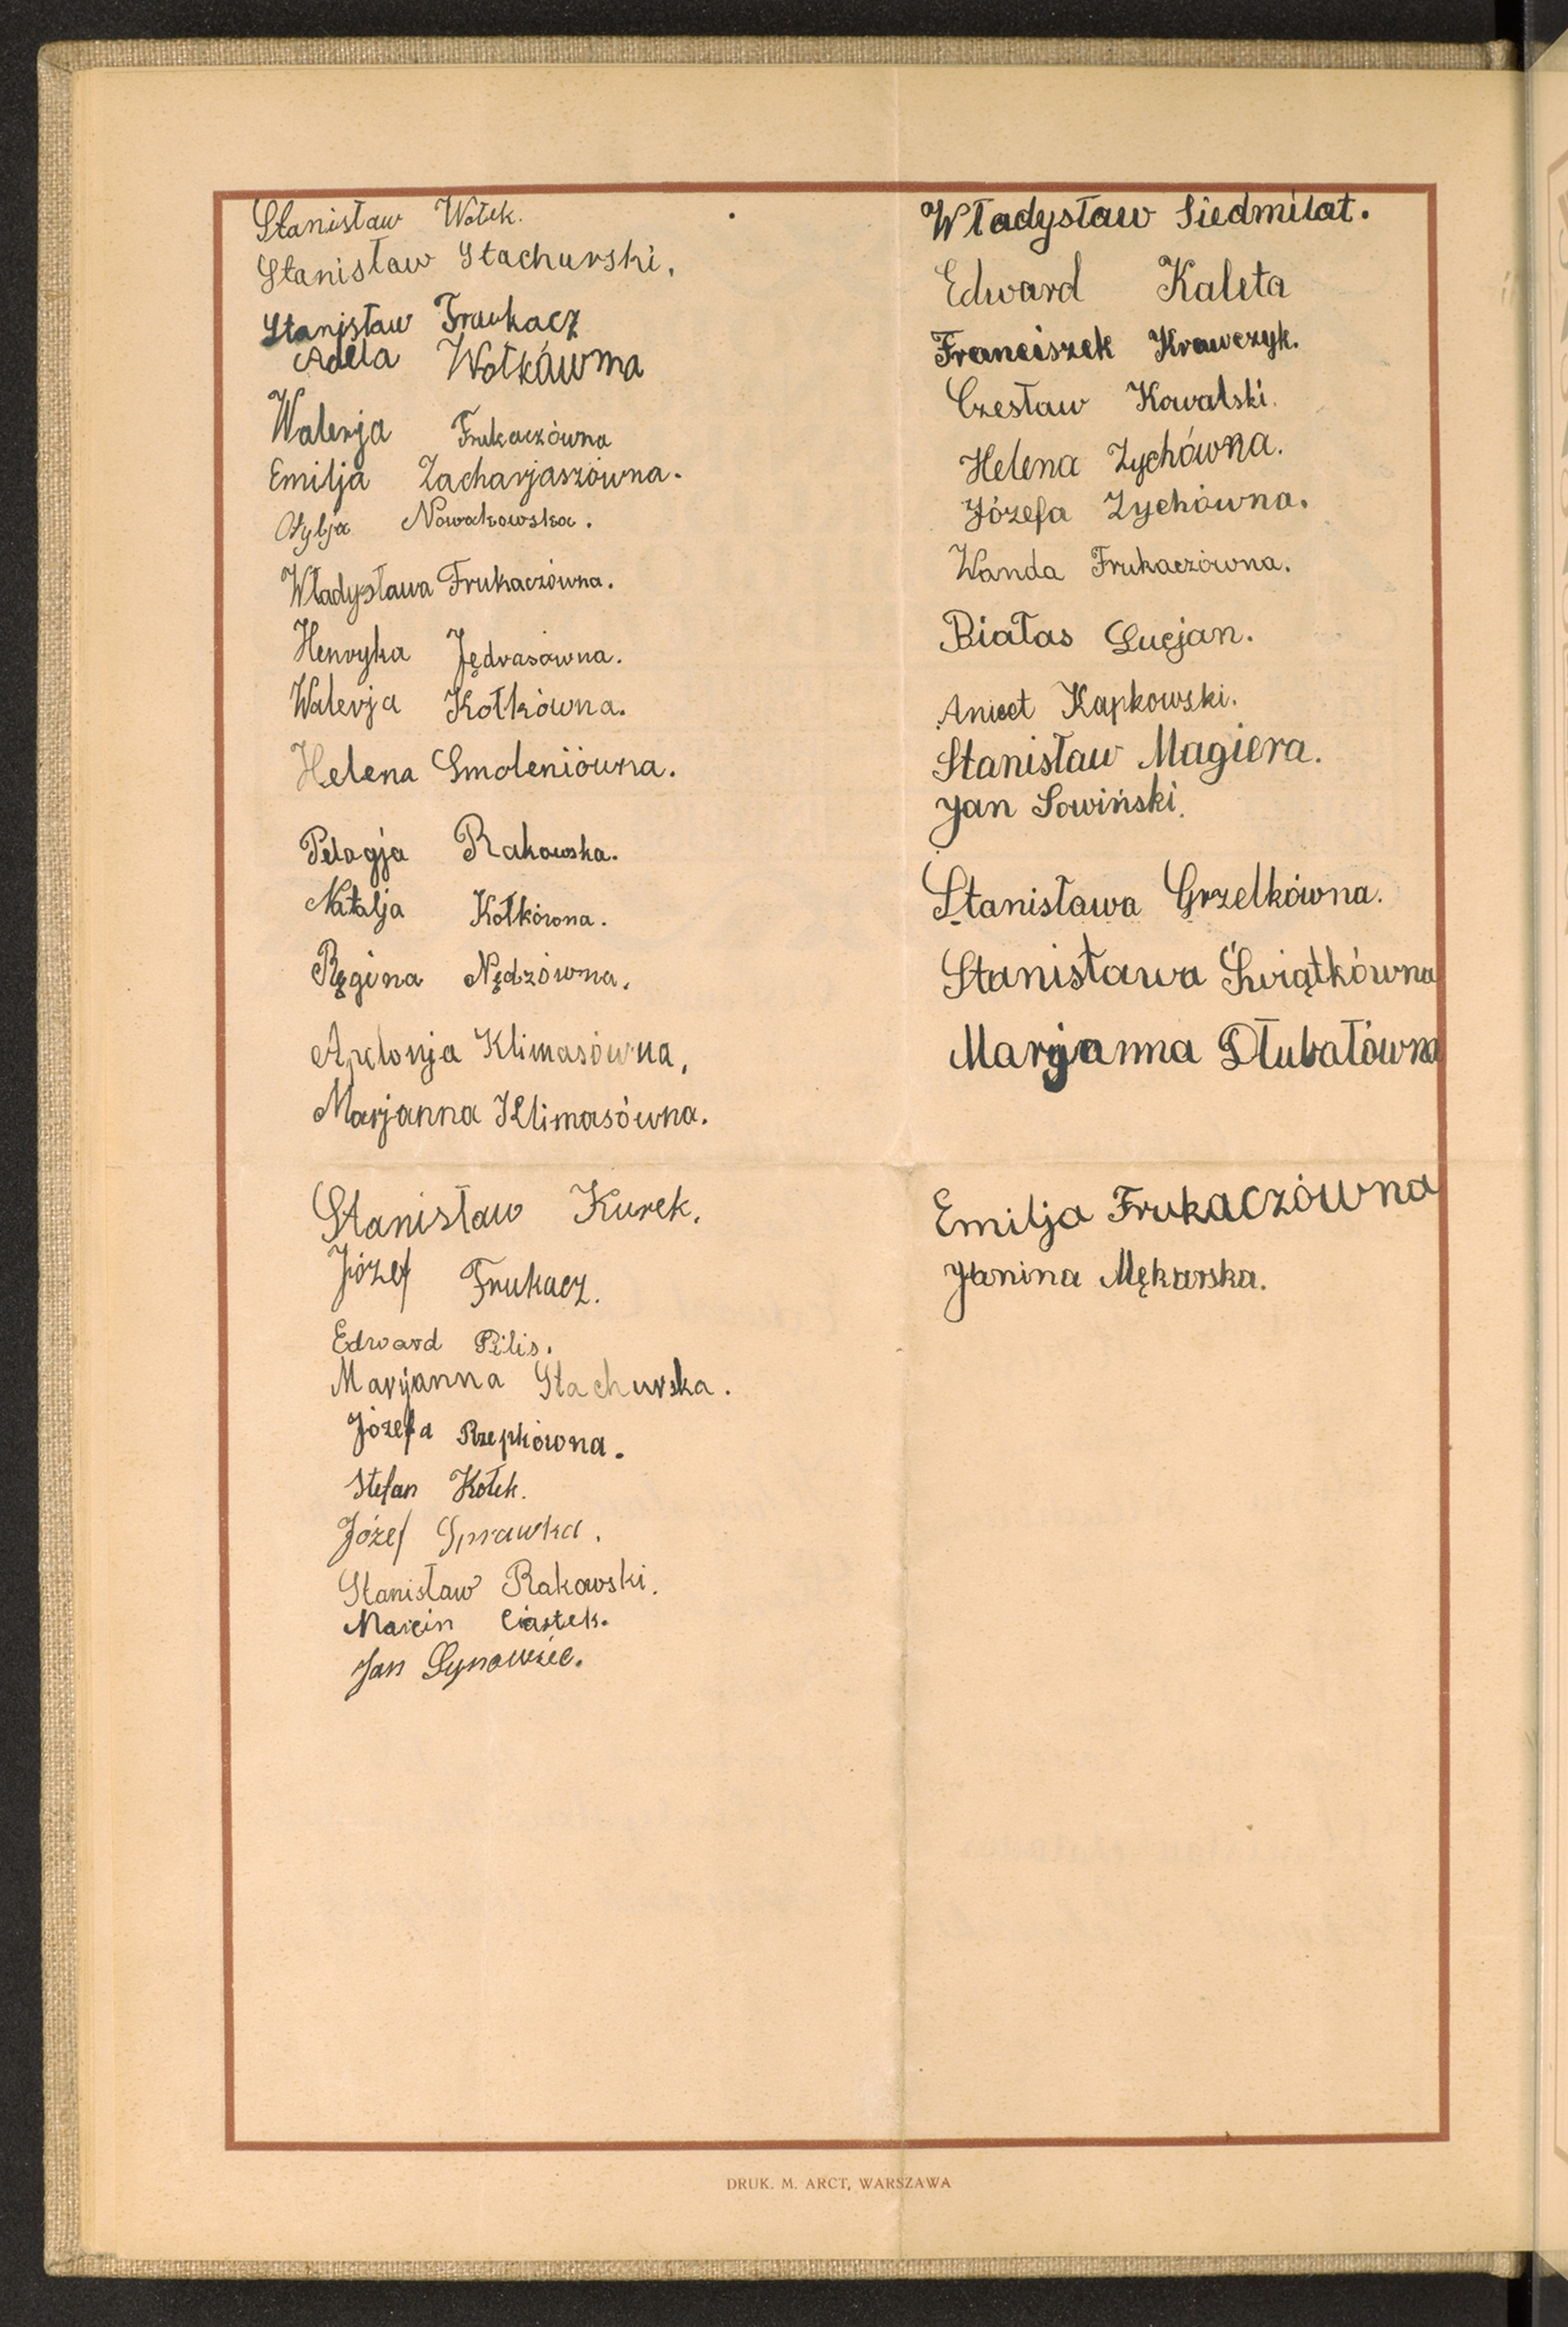 Stanisław Wołek.
Stanisław Stachurski,
Stanisław Frukacz
Adela Wołkówna
Walerja Frukaczówna
Emilja Zacharjaszówna.
Otylja Nowakowska.
Władysława Frukaczówna.
Henryka Jędrasówna.
Walerja Kołkówna.
Helena Smoleniówna.
Pelagja Rakowska.
Natalja Kołkówna.
Regina Nędzówna,
Apolonja Klimasówna,
Marjanna Klimasówna.
Stanisław Kurek,
Józef Frukacz.
Edward Pilis.
Maryjanna Stachurska.
Józefa Rzepkówna.
Stefan Kołek.
Józef Sprawka.
Stanisław Rakowski.
Marcin Ciastek.
Jan
Władysław Siedmilat.
Edward Kaleta
Franciszek Krawczyk.
Czesław Kowalski.
Helena Zychówna.
Józefa Zychówna.
Wanda Frukaczówna.
Białas Lucjan.
Anicet Kapkowski.
Stanisław Magiera.
Jan Sowiński.
Stanisława Grzelkówna.
Stanisława Świątkówna
Marjanna Dłubałówna
Emilja Frukaczówna
Janina Mękarska.
DRUK. M. ARCT, WARSZAWA